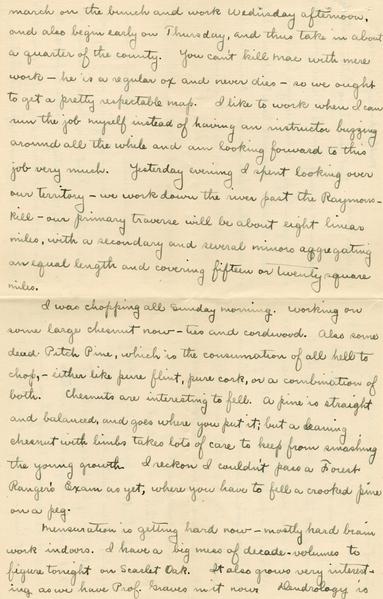 march on the bunch and work Wednesday afternoon,
and also begin early on Thursday, and thus take in about
a quarter of the county. You can't kill Mac with mere
work - he is a regular ox and never dies - so we ought
to get a pretty respectable map. I like to work when I can
run the job myself instead of having an instructor buzzing
around all the while and am looking foward to this
job very much. Yesterday evening I spent looking over
our territory - we work down the river past the Raymons-
kill - our primary traverse will be about eight linear
miles, with a secondary and several minors aggregating
an equal length and covering fifteen or twenty square
miles.
I was chopping all Sunday morning. Working on
some large chesnut now - ties and cordwood. Also some
dead Pitch Pine, which is the consumation of all hell to
chop, - either like pure flint, pure cork, or a combination of
both. Chesnuts are interesting to fell. A pine is straight
and balanced, and goes where you put it; but a leaning
chesnut with limbs takes lots of care to keep from smashing
the young growth. I reckon I couldn't pass a Forest
Ranger's Exam as yet, where you have to fell a crooked pine
on a peg.
Mensuration is getting hard now - mostly hard brain
work indoors. I have a big mess of decade-volumes to
figure tonight on Scarlet Oak. It also grows very interest-
ing as we have Prof. Graves in it now. Dendrology is